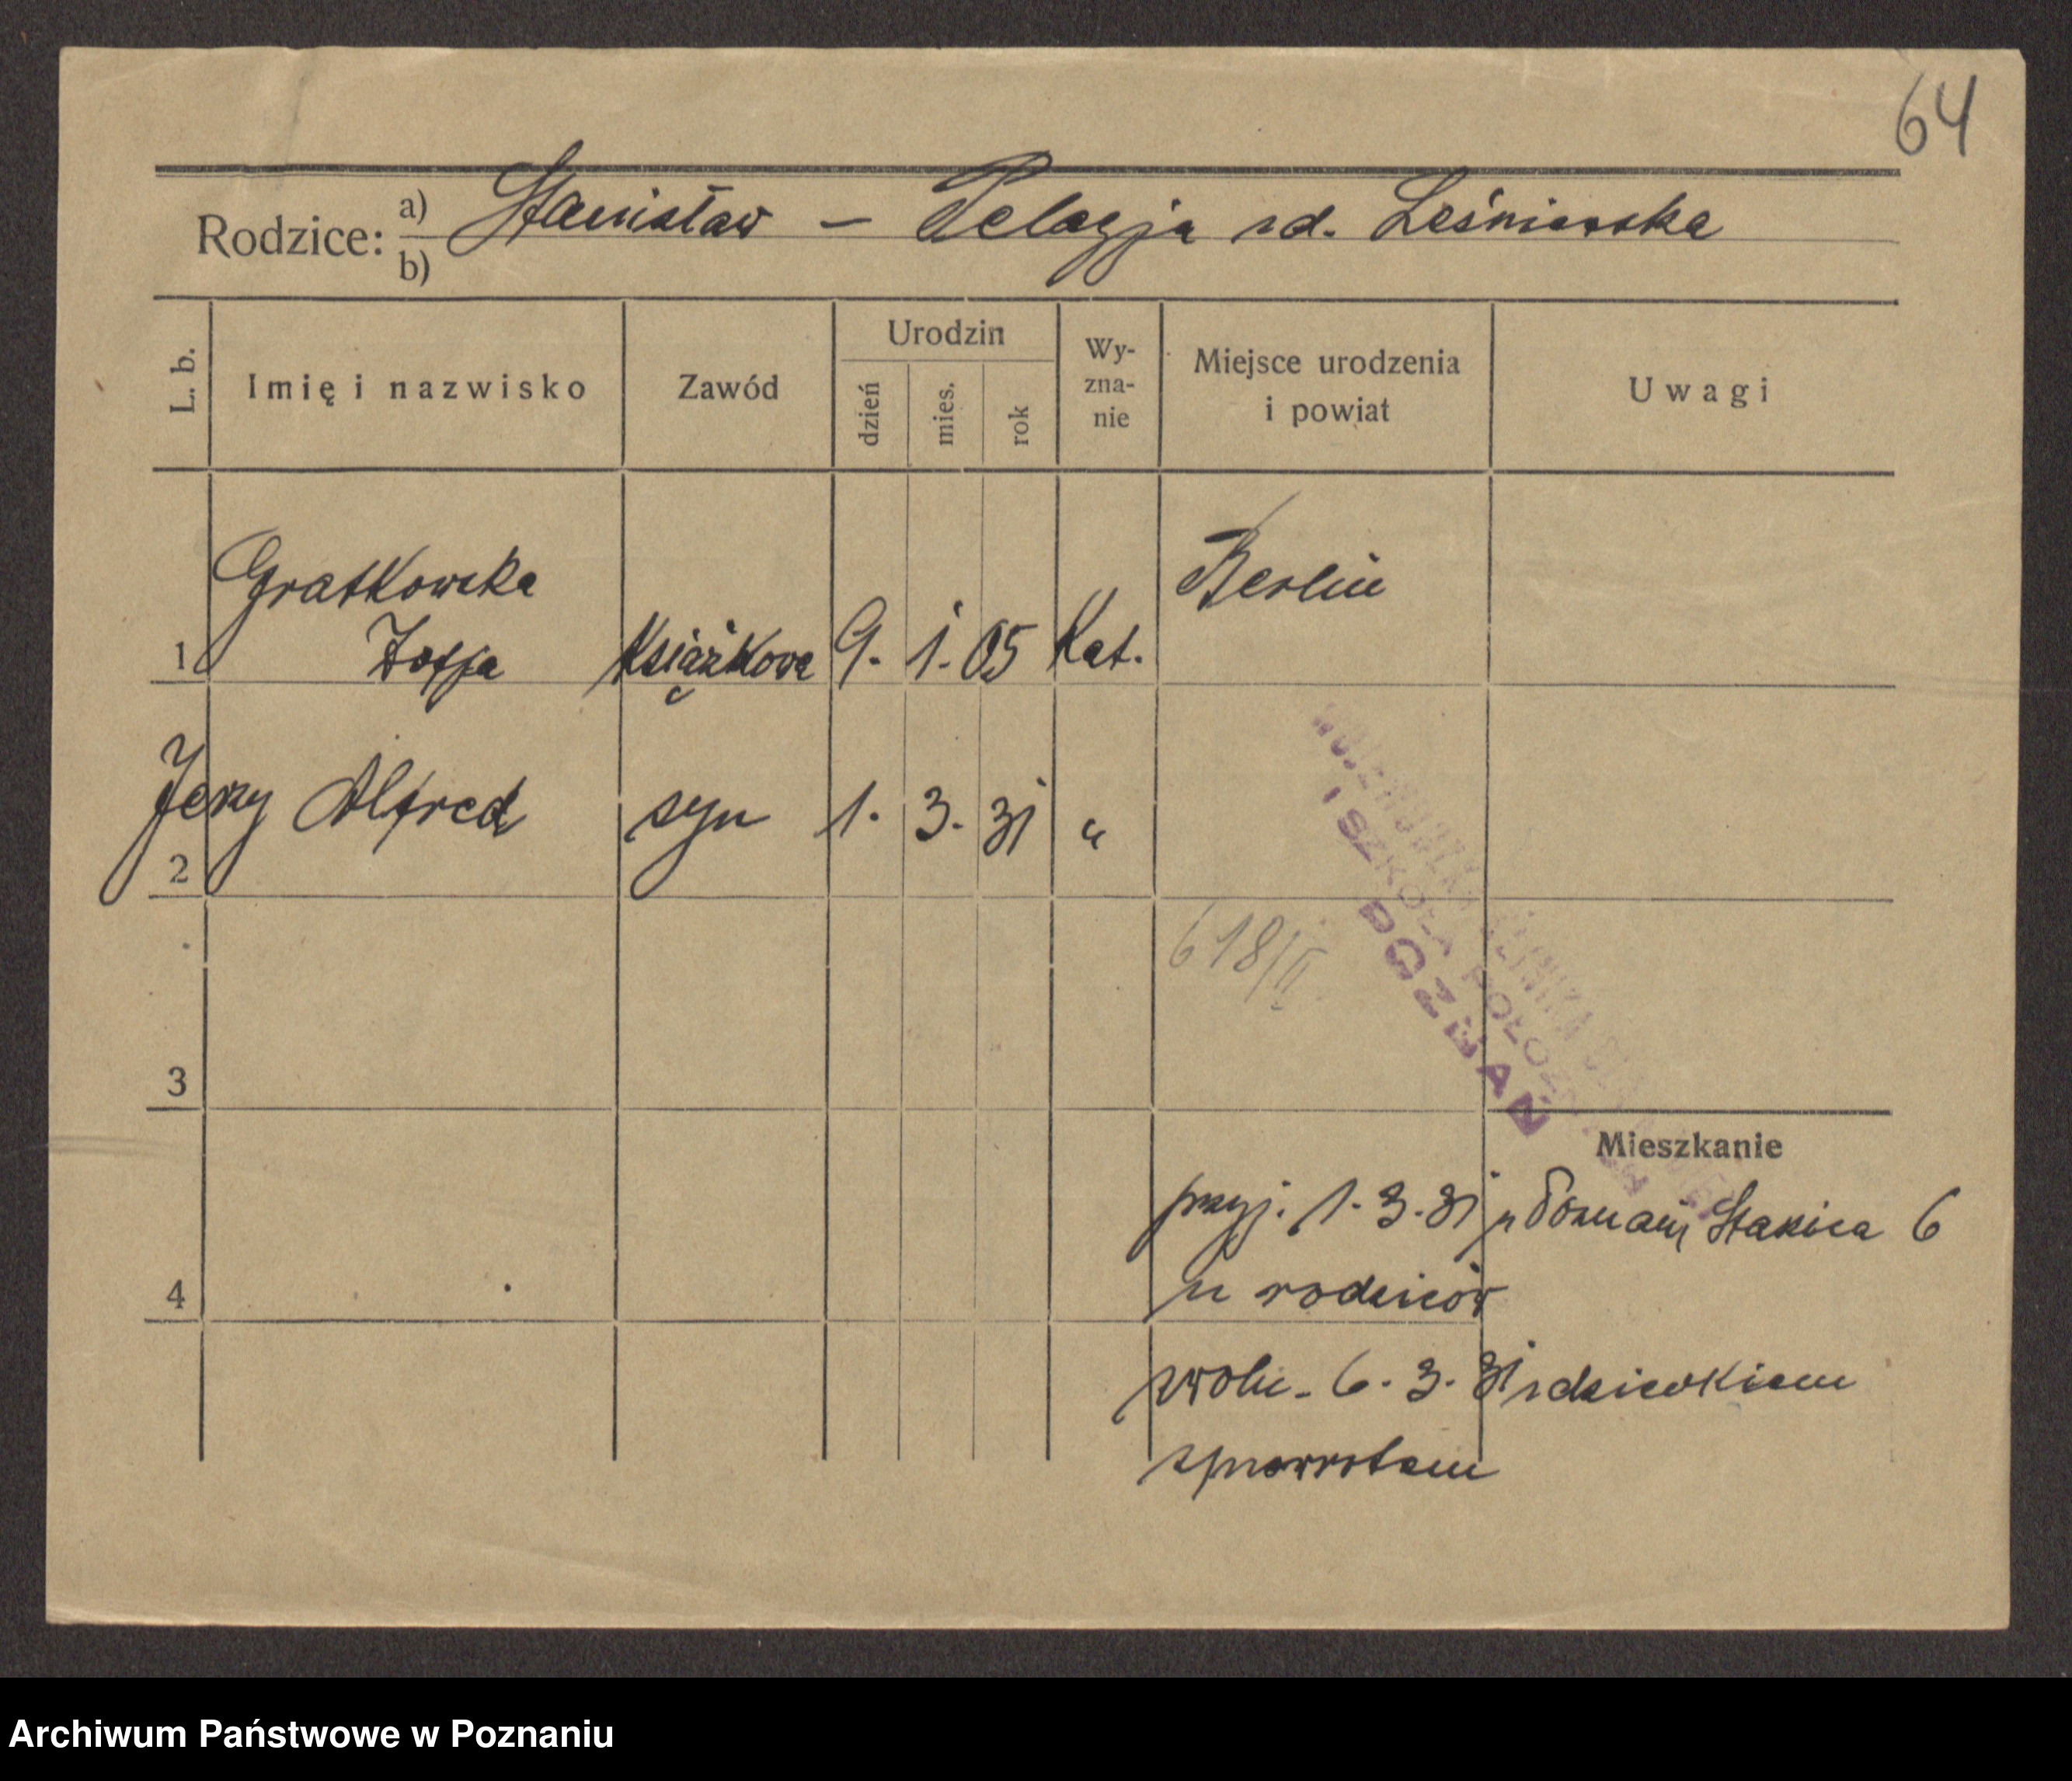 64
Rodzice: a) Stanisław – Pelagja zd. Leśniewska
b)
L. b. Imię i nazwisko Zawód Urodzin dzień mies. rok Wy-
zna-
nie Miejsce urodzenia
i powiat Uwagi
Gratkowska Berlin
1 Zofja Książkowa 9. 1. 05 Kat.
Jerzy Alfred syn 1. 3. 31 "
2
618/II
WOJEWÓDZKA KLINIKA
I SZKOŁA POŁOŻN
POZNAŃ
3
Mieszkanie
przyj. 1. 3. 31 z Poznań, Staszica 6
4 u rodziców
zwoln. 6. 3. 31 z dzieckiem
zpowrotem
Archiwum Państwowe w Poznaniu